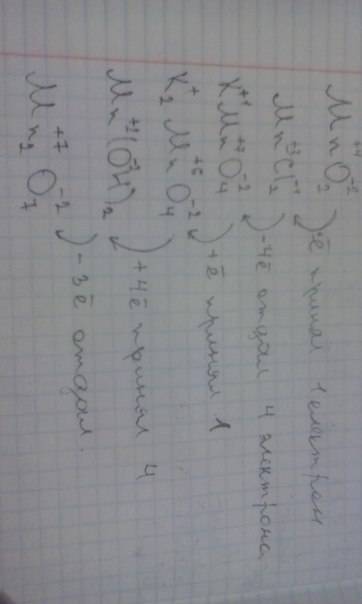 Mn⁺⁴O₂⁻²
-ē принял 1 електрон
Mn⁺³Cl₂⁻¹
-4ē отдал 4 электрона
K⁺¹Mn⁺⁷O₄⁻²
+ē принял 1
K₂⁺Mn⁺⁶O₄⁻²
+4ē принял 4
Mn⁺²(OH)₂
-3ē отдал.
Mn₂⁺⁷O₇⁻²